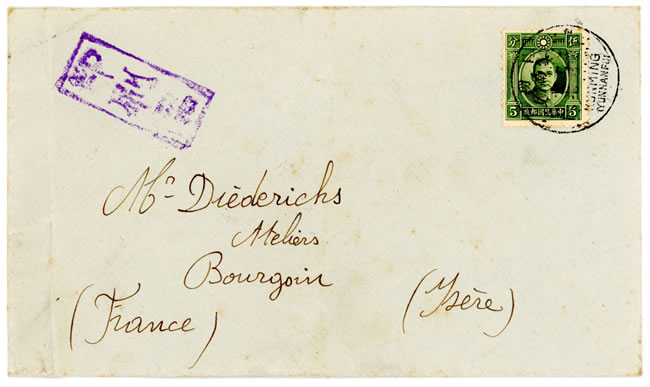 分 伍
5 5
政郵國民華中
KUNMING
(YUNNANFU)
Mr Diéderichs
Ateliers
Bourgoin
(Isère)
(France)